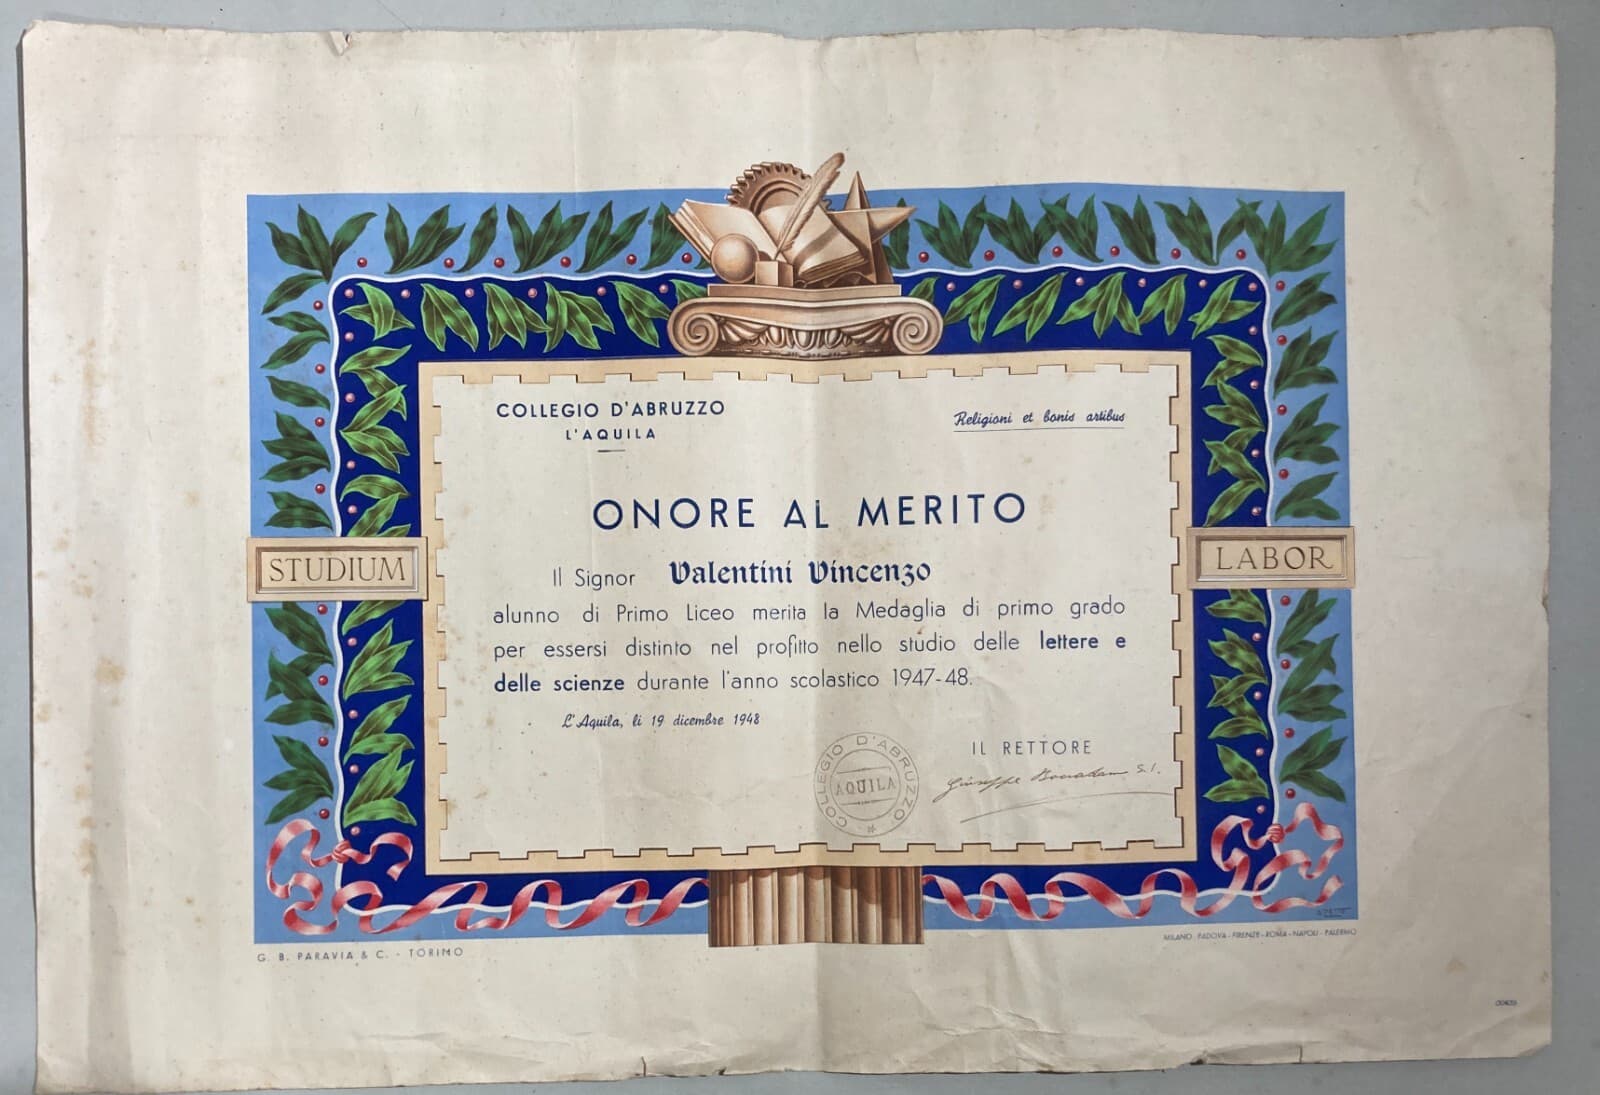 COLLEGIO D'ABRUZZO
L'AQUILA
Religioni et bonis artibus
ONORE AL MERITO
Il Signor Valentini Vincenzo
alunno di Primo Liceo merita la Medaglia di primo grado
per essersi distinto nel profitto nello studio delle lettere e
delle scienze durante l'anno scolastico 1947-48.
L'Aquila, li 19 dicembre 1948
STUDIUM
LABOR
IL RETTORE
Giuseppe S.I.
COLLEGIO D'ABRUZZO
AQUILA
G. B. PARAVIA & C. - TORINO
MILANO - PADOVA - FIRENZE - ROMA - NAPOLI - PALERMO